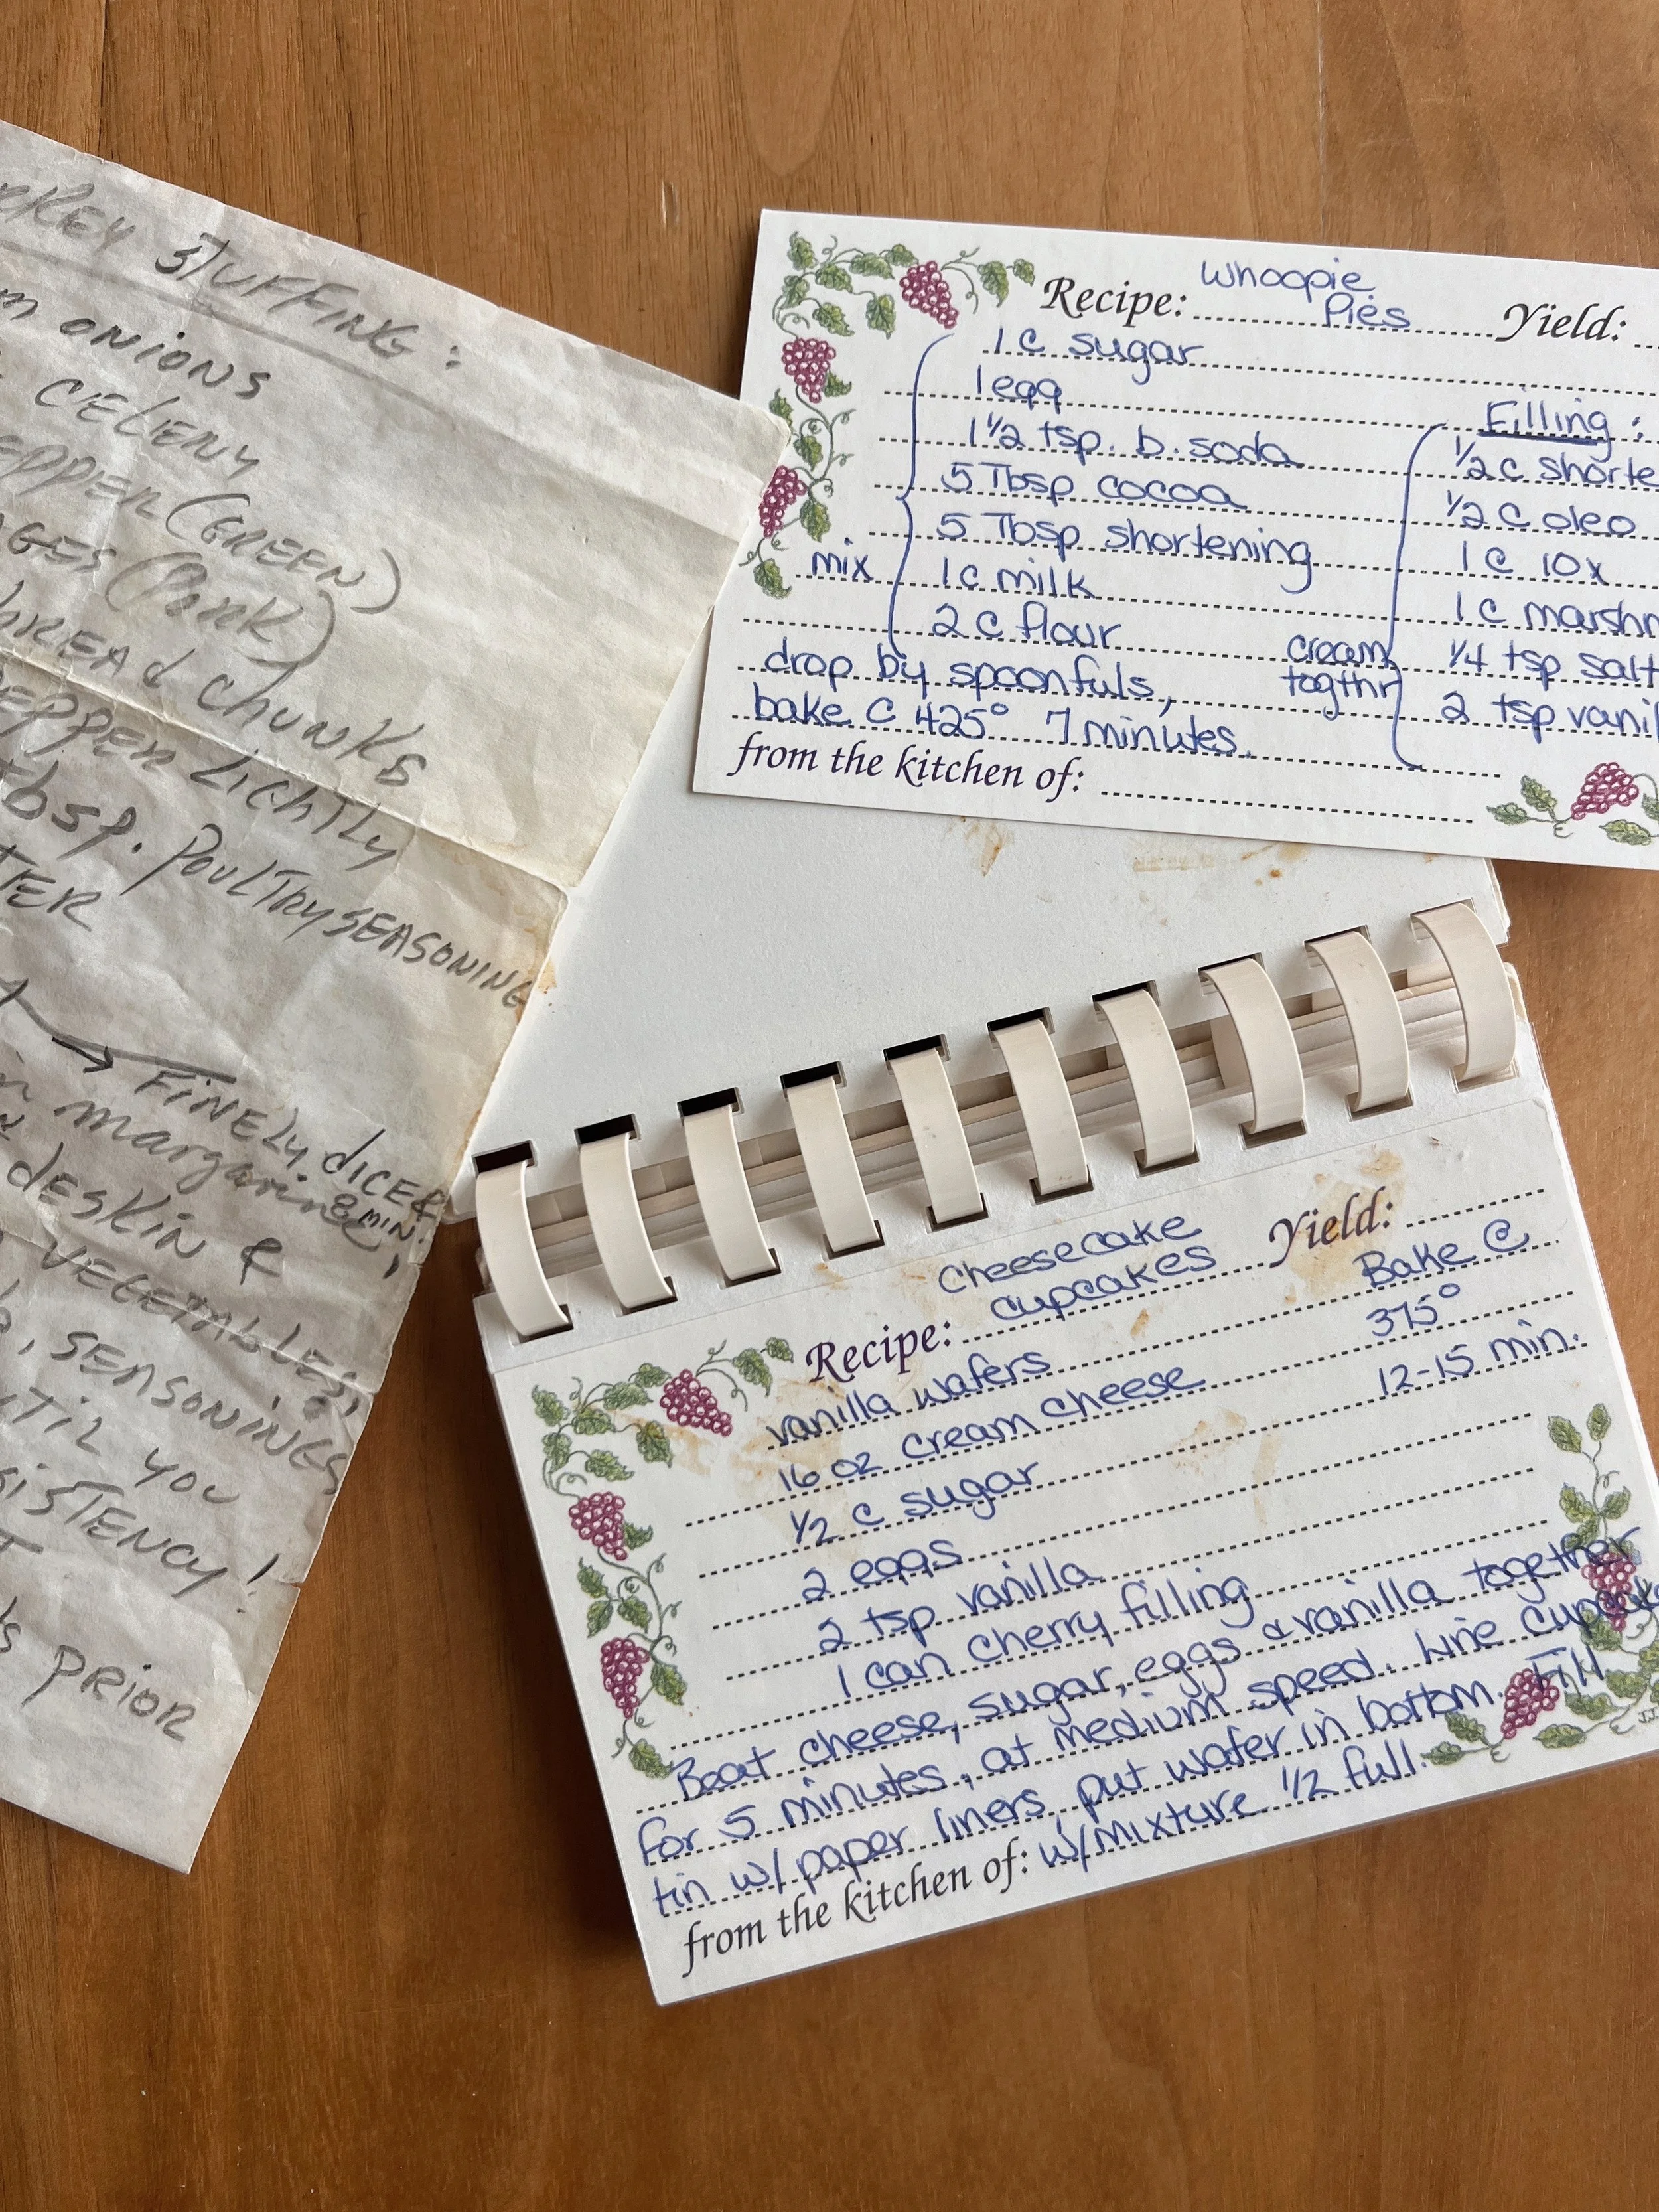 STUFFING:
ONIONS
CELERY
(GREEN)
(PORK)
CHUNKS
LIGHTLY
POULTRY SEASONING
FINELY DICED
margarine, 8 MIN.
DESKIN &
VEGETABLES,
SEASONINGS
YOU
!
PRIOR
Recipe: Whoopie Pies Yield:
1 c sugar
1 egg
1 1/2 tsp. b. soda
5 Tbsp cocoa
5 Tbsp shortening
mix 1 c milk
2 c flour
drop by spoonfuls,
bake @ 425° 7 minutes.
Filling:
1/2 c
1/2 c oleo
1 c 10x
1 c
1/4 tsp salt
2 tsp
cream
togthr
from the kitchen of:
Recipe: Cheesecake cupcakes Yield:
vanilla wafers Bake @
16 oz cream cheese 375°
1/2 c sugar 12-15 min.
2 eggs
2 tsp vanilla
1 can cherry filling
Beat cheese, sugar, eggs & vanilla together
for 5 minutes, at medium speed. Line cupcake
tin w/ paper liners, put wafer in bottom. Fill
from the kitchen of: w/ mixture 1/2 full.